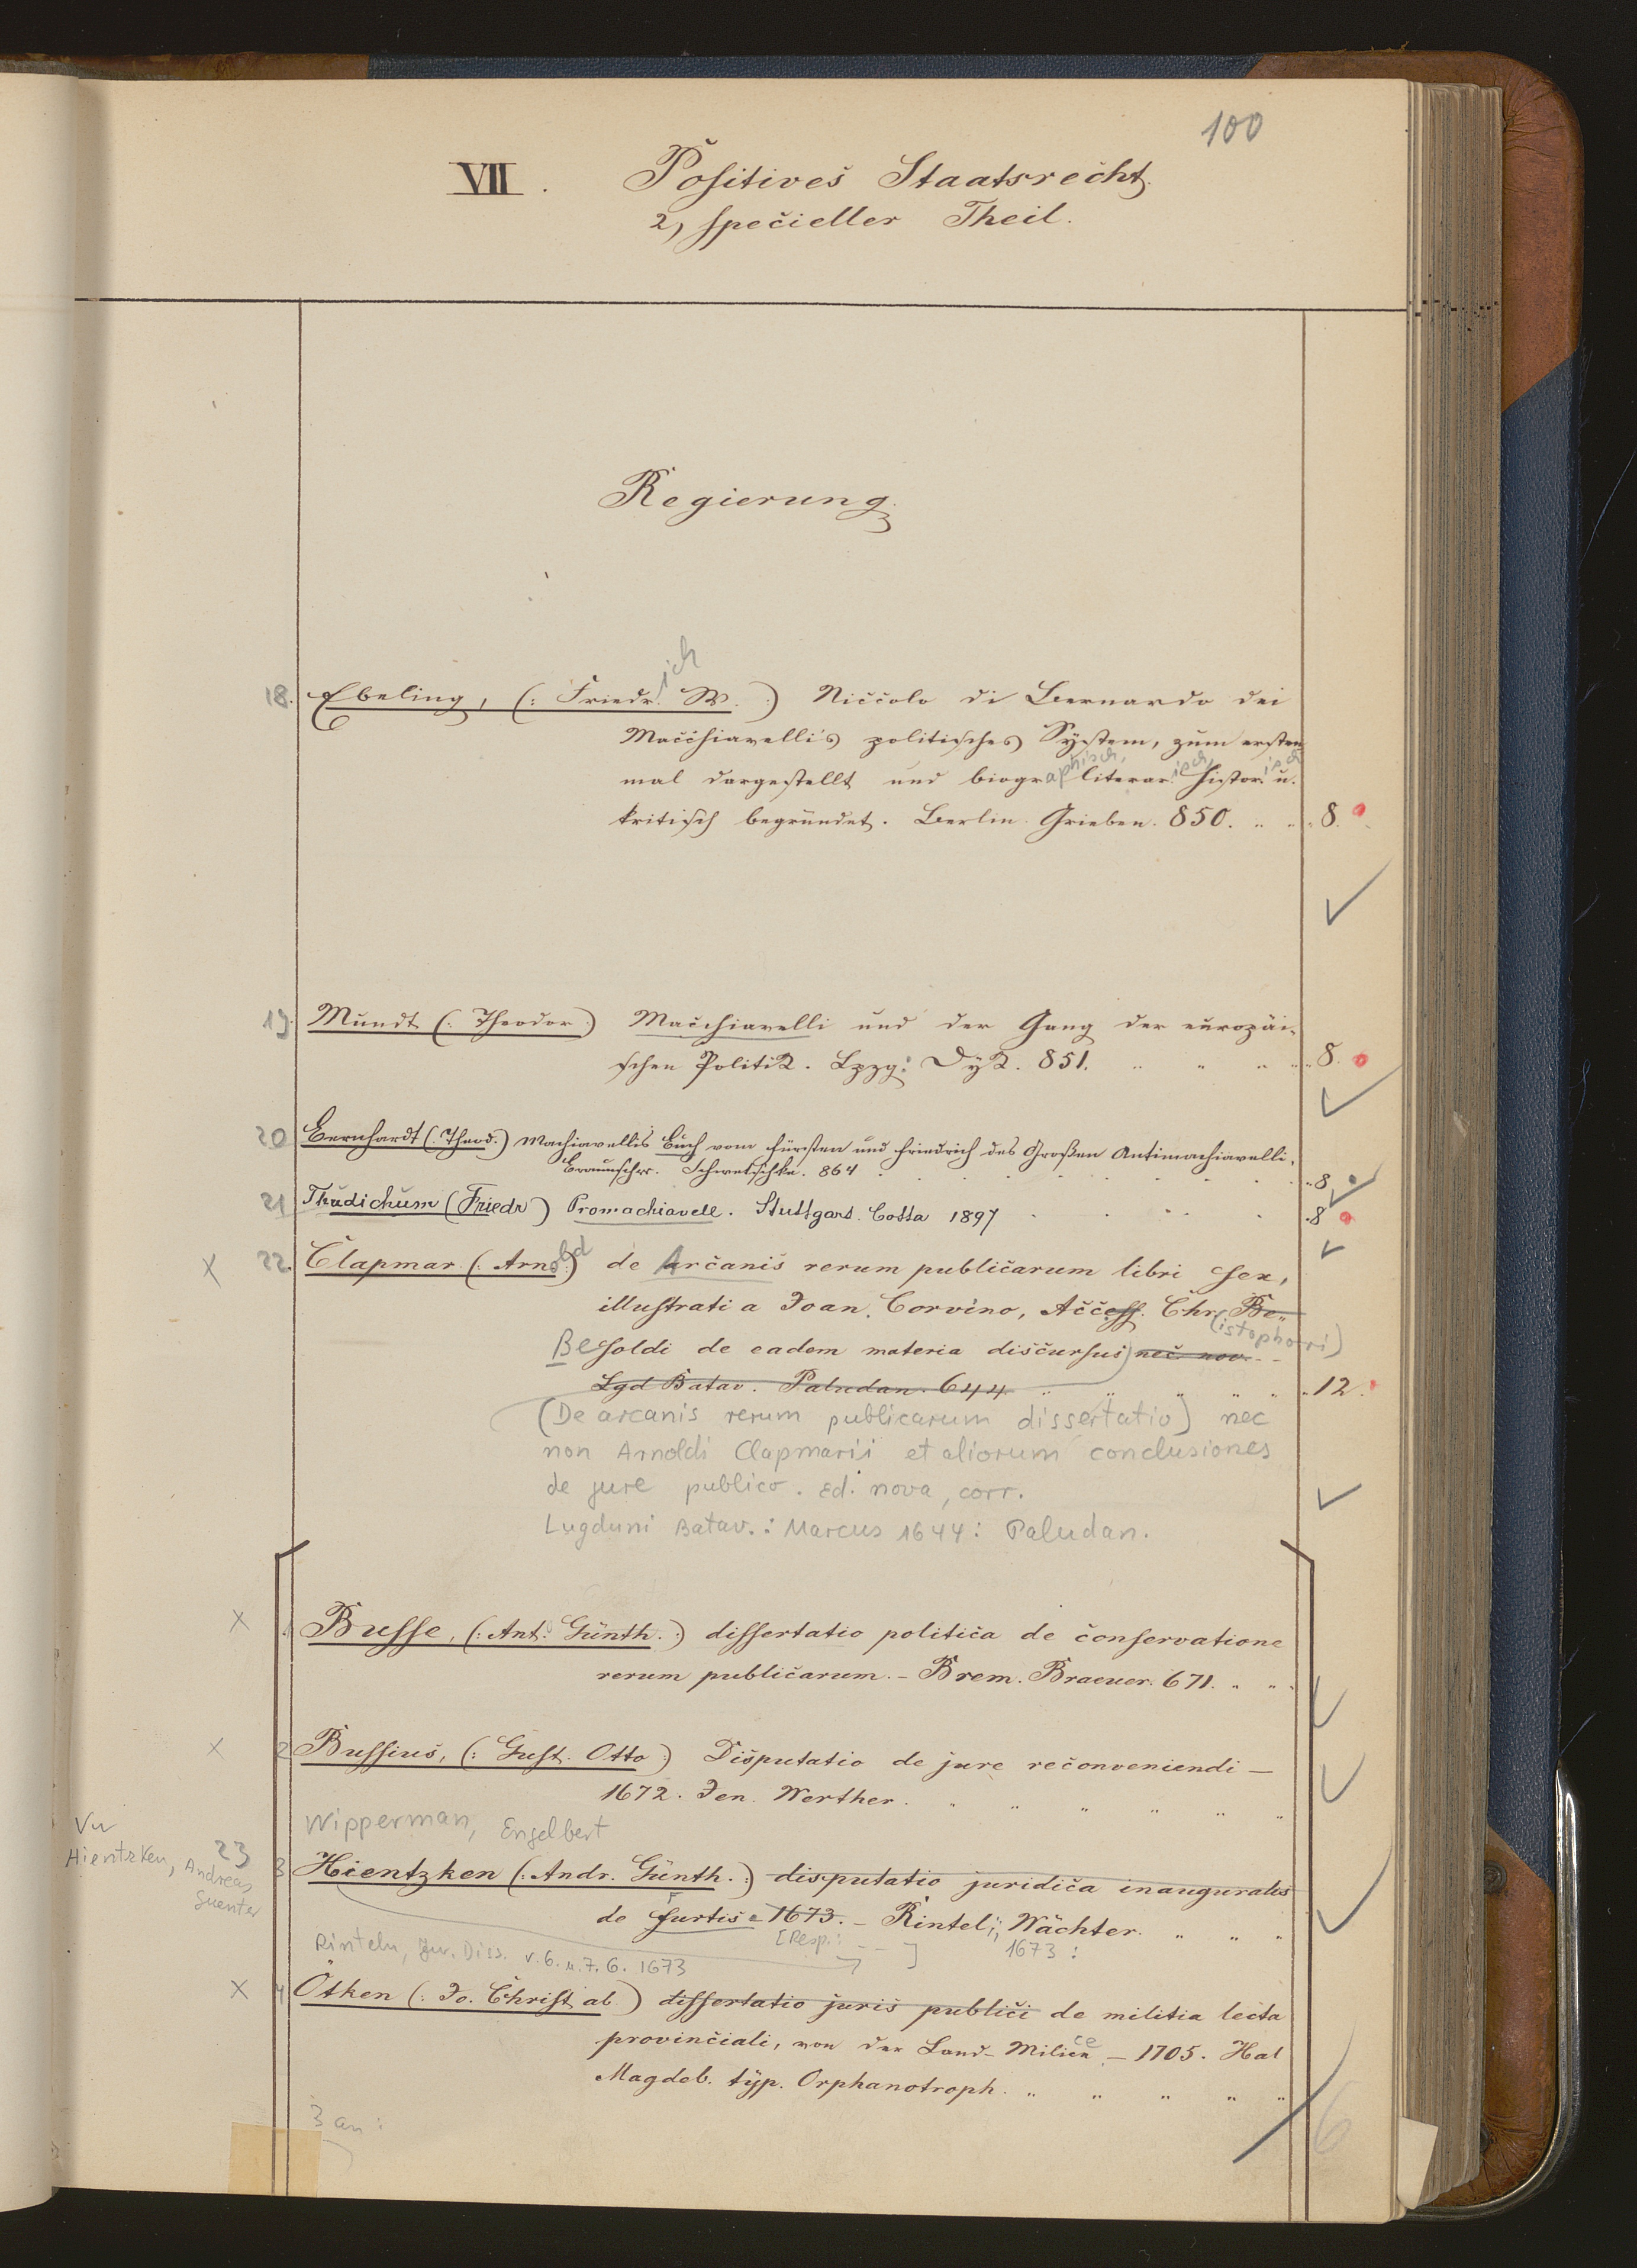 100
VII. Positives Staatsrecht.
2, specieller Theil.
Regierung.
18. Ebeling, (: Friedr.ich W. :) Niccolo di Bernardo dei
Macchiavelli's politisches System, zum ersten
mal dargestellt und biographisch, literar.isch, histor.isch u.
kritisch begründet. Berlin. Grieben. 850. " " 8.
19. Mundt (: Theodor :) Macchiavelli und der Gang der europäi-
schen Politik. Lpzg: Dyk. 851. " " " " 8.
20 Bernhardt (: Theod.) Machiavellis Buch vom Fürsten und Friedrich des Großen Antimachiavelli.
Braunschw. Schwetschke. 864 . . . . . . . 8.
21 Thudichum (Friedr) Promachiavell. Stuttgard. Cotta 1897 . . . . . 8
x 22. Clapmar (: Arnold :) de Arcanis rerum publicarum libri sex,
illustrati a Joan. Corvino, Access. Chr. Be-
(istophori)
Besoldi de eadem materia discursus) nec nov.
Lgd Batav. Paludan. 644 " " " " " 12.
(De arcanis rerum publicarum dissertatio) nec
non Arnoldi Clapmarii et aliorum conclusiones
de jure publico. Ed. nova, corr.
Lugduni Batav.: Marcus 1644: Paludan.
x 1 Busse, (: Ant. Günth. :) dissertatio politica de conservatione
rerum publicarum. - Brem. Braeuer. 671. " " "
x 2 Bussius, (: Gust. Otto :) Disputatio de jure reconveniendi —
1672. Jen. Werther. " " " " " "
Wipperman, Engelbert
Vu
Hientzken, Andreas
Guenter
23
3 Hientzken (: Andr. Günth. :) disputatio juridica inauguralis
de furtis - 1673. - Rintel; Wächter. " " "
[Resp.: - - ] 1673:
Rinteln, Jur. Diss. v. 6. u. 7. 6. 1673
x 4 Ötken (: Jo. Christ. ab :) dissertatio juris publici de militia lecta
provinciali, von der Land-Milice - 1705. Hal
Magdeb. typ. Orphanotroph. " " " " "
3 an:
6